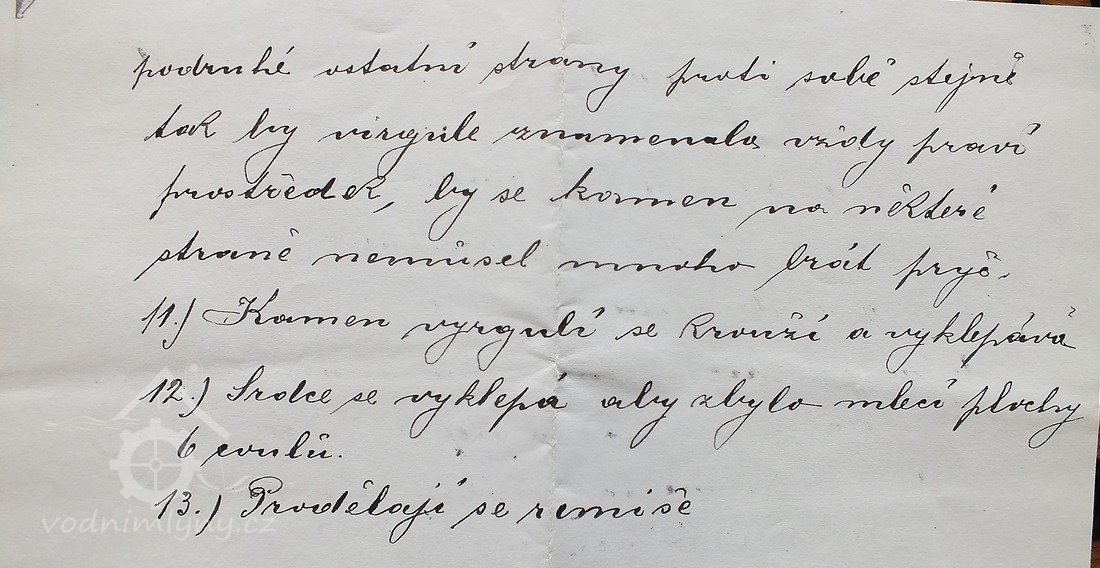 podruhé ostatní strany proti sobě stejně
tak by virgule znamenala vždy praví
prostředek, by se kamen na některé
straně nemusel mnoho brát pryč.
11.) Kamen vyrgulí se krouží a vyklepává
12.) Srdce se vyklepá aby zbylo mlecí plochy
6 coulů.
13.) Prodělají se remiše
vodnimlyny.cz